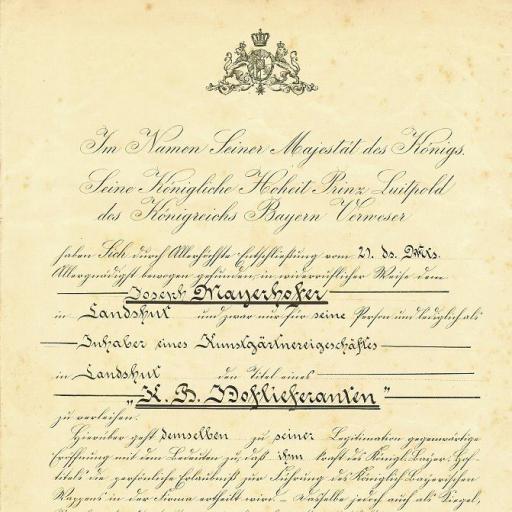 Im Namen Seiner Majestät des Königs.
Seine Königliche Hoheit Prinz Luitpold
des Königreichs Bayern Verweser
haben Sich durch Allerhöchste Entschließung vom 21. ds. Mts.
Allergnädigst bewogen gefunden, in widerruflicher Weise dem
Joseph Mayerhofer
in Landshut und zwar nur für seine Person und lediglich als
Inhaber eines Kunstgärtnereigeschäftes
in Landshut den Titel eines
„K. B. Hoflieferanten"
zu verleihen.
Hierüber geht demselben zu seiner Legitimation gegenwärtige
Eröffnung mit dem Bedeuten zu, daß ihm kraft des Königl. Bayer. Hof-
titels die persönliche Erlaubniß zur Führung des Königlich Bayerischen
Wappens in der Firma ertheilt wird. – Dasselbe jedoch auch als Siegel,